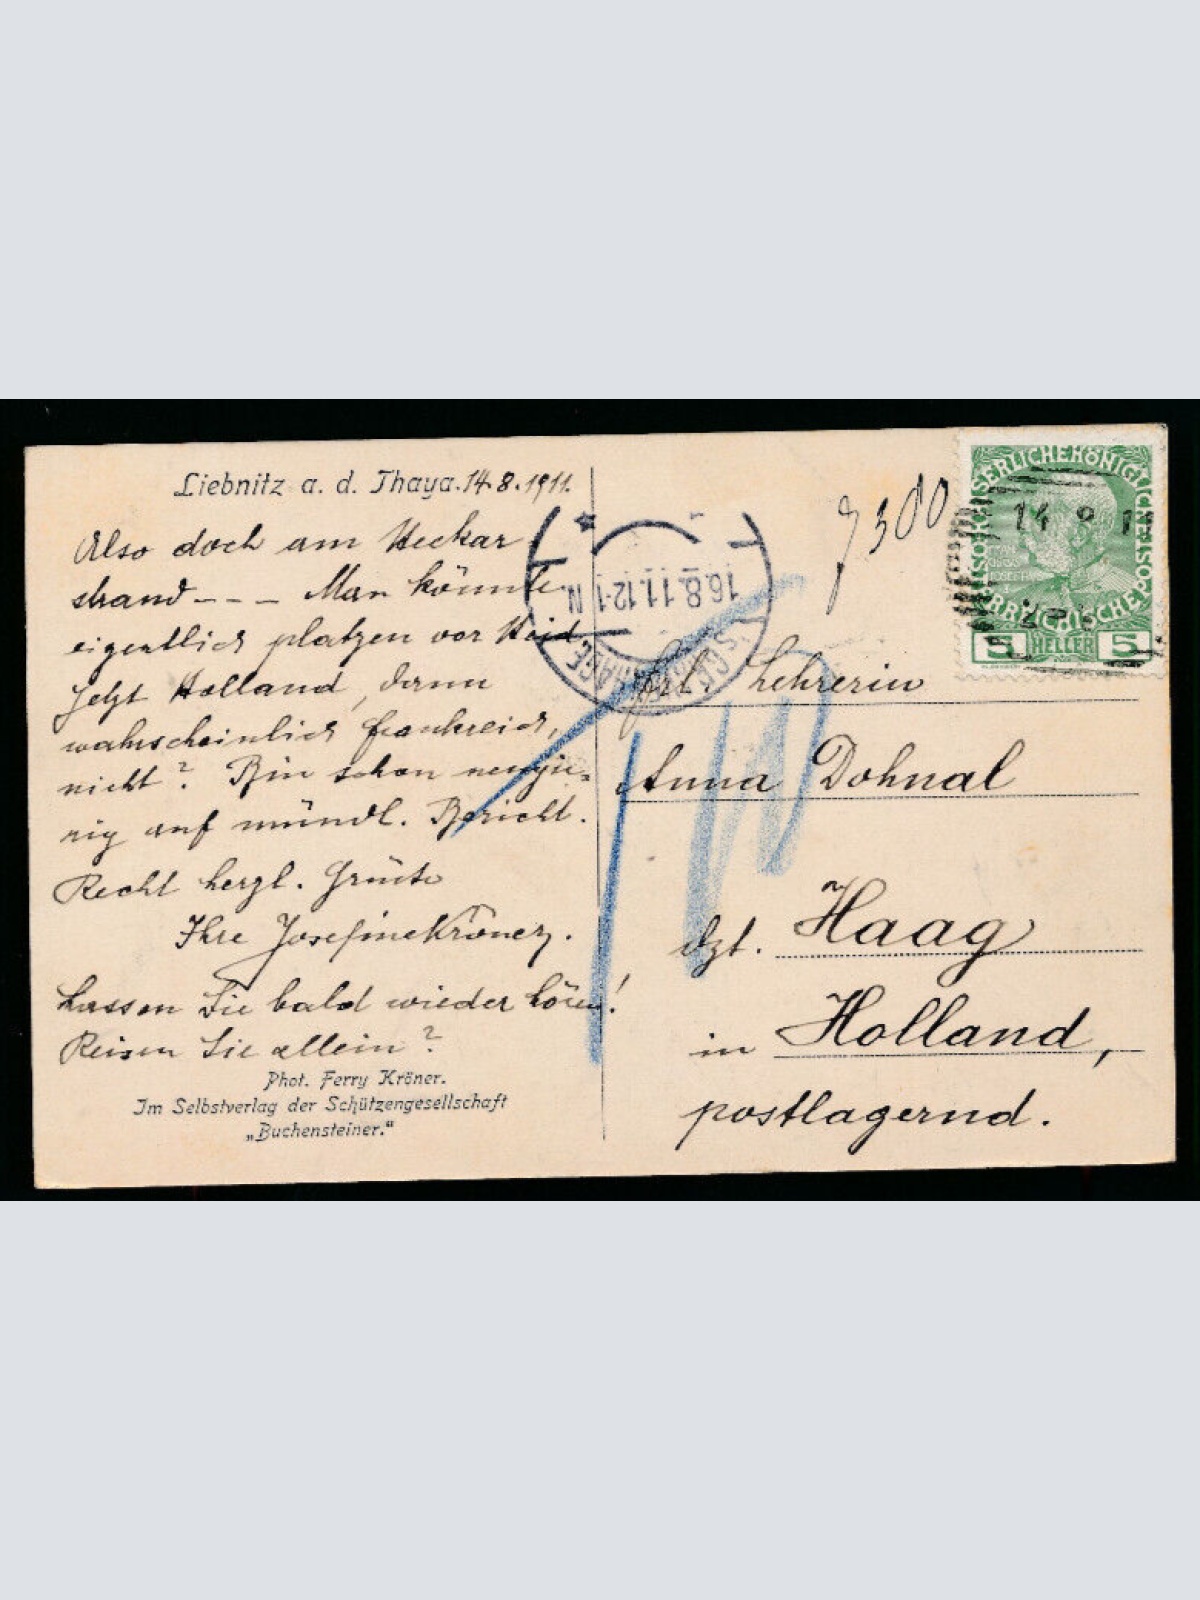 Liebnitz a. d. Thaya. 14.8.1911.
Also doch am Neckar
strand --- Man könnte
eigentlich platzen vor Neid
Jetzt Holland, dann
wahrscheinlich Frankreich,
nicht? Bin schon neugie-
rig auf mündl. Bericht.
Recht herzl. Grüße
Ihre Josefine Kröner.
Lassen Sie bald wieder hören!
Reisen Sie allein?
Phot. Ferry Kröner.
Im Selbstverlag der Schützengesellschaft
„Buchensteiner."
16.8.11.12-1 N
'S-GRAVENHAGE
9300
KAISERLICHE KÖNIGLICHE ÖSTERREICHISCHE POST
5 HELLER 5
14 8 1
Frl. Lehrerin
Anna Dohnal
dzt. Haag
in Holland,
postlagernd.
10